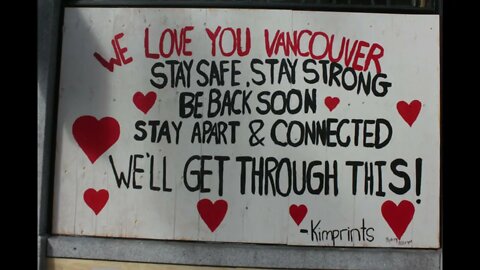 WE LOVE YOU VANCOUVER
STAY SAFE, STAY STRONG
BE BACK SOON
STAY APART & CONNECTED
WE'LL GET THROUGH THIS!
-Kimprints